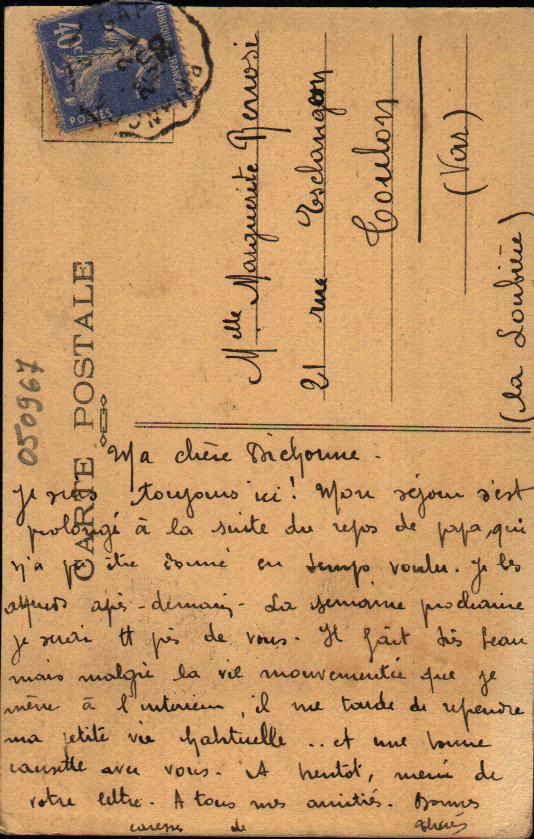 40c
POSTES
GAP
BRIANÇON
CARTE POSTALE
050967
Melle Marguerite
21 rue Esclangon
Toulon
(Var)
(la Loubière)
Ma chère
Je suis toujours ici ! Mon séjour s'est
prolongé à la suite du repos de papa, qui
n'a pu être donné en temps voulu. Je les
attends après-demain. La semaine prochaine
je serai tt près de vous. Il fait très beau
mais malgré la vie mouvementée que je
mène à l'interieur, il me tarde de reprendre
ma petite vie habituelle .. et une bonne
causette avec vous. A bientôt, merci de
votre lettre. A tous mes amitiés. Bonnes
caresses de